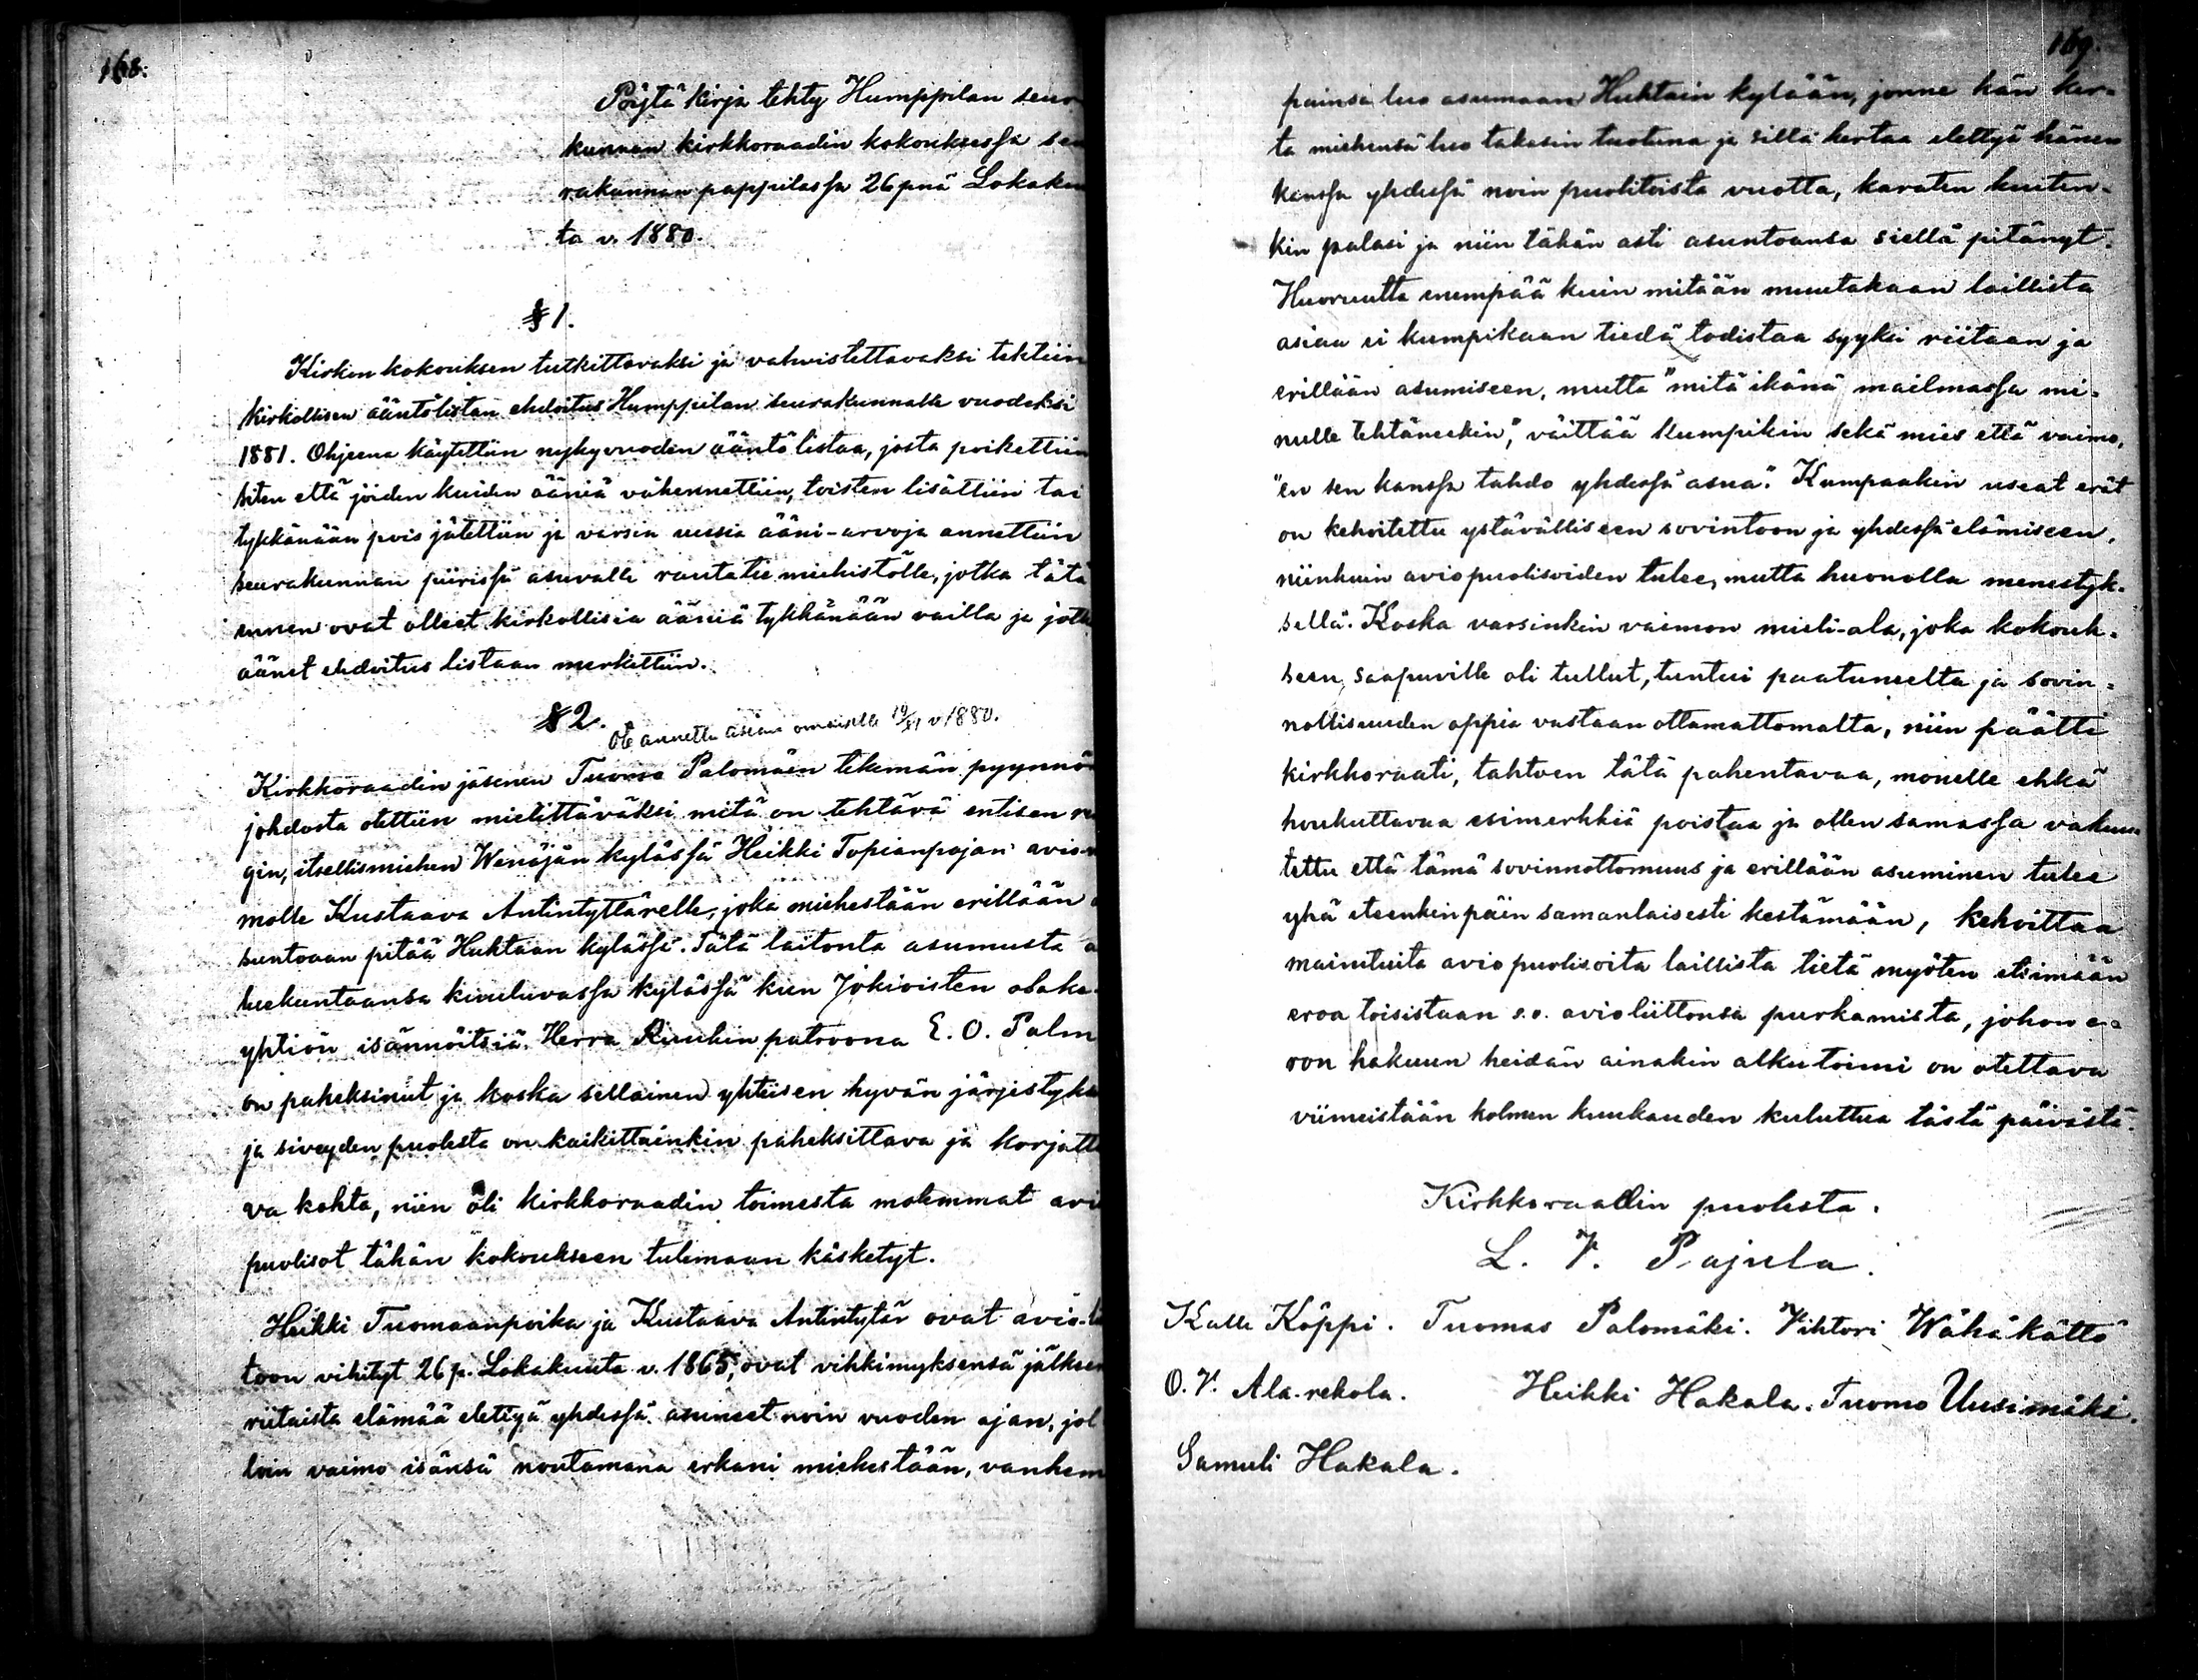 168.
Pöytä kirja tehty Humppilan seur
kunnan kirkkoraadin kokouksessa seu
rakunnan pappilassa 26 pnä Lokaku
ta v. 1880.
§ 1.
Kirkon kokouksen tutkittavaksi ja vahvistettavaksi tehtiin
kirkollisen ääntölistan ehdoitus Humppilan seurakunnalle vuodeksi
1881. Ohjeena käytettiin nykyvuoden ääntö listaa, josta poikettiin
siten että joiden kuiden ääniä vähennettiin, toisten lisättiin tai
tykkänään pois jätettiin ja varsin uusia ääni-arvoja annettiin
seurakunnan piirissä asuvalle rautatie miehistölle, jotka tätä
ennen ovat olleet kirkollisia ääniä tykkänään vailla ja jotk
äänet ehdoitus listaan merkittiin.
§ 2.
Ote annettu asian omaiselle 19/XI v 1880.
Kirkkoraadin jäsenen Tuomo Palomäen tekemän pyynnö
johdosta otettiin mietittäväksi mitä on tehtävä entisen re
gin, itsellismiehen Wenäjän kylässä Heikki Topianpojan avio-
molle Kustaava Antintyttärelle, joka miehestään erillään
suntoaan pitää Huhtaan kylässä. Tätä laitonta asumusta
huekuntaansa kuuluvassa kylässä kun Jokioisten osake-
yhtiön isännöitsiä Herra Ruukin patroona E. O. Palm
on paheksinut ja koska sellainen yhteisen hyvän järjestyks
ja siveyden puolesta on kaikittainkin paheksittava ja korjatt
va kohta, niin oli kirkkoraadin toimesta molemmat avi
puolisot tähän kokoukseen tulemaan käsketyt.
Heikki Tuomaanpoika ja Kustaava Antintytär ovat avio-li
toon vihityt 26 p. Lokakuuta v. 1865, ovat vihkimyksensä jälkeen
riitaista elämää elettyä yhdessä asuneet noin vuoden ajan, jol
loin vaimo isänsä noutamana erkani miehestään, vanhem
169.
painsa luo asumaan Huhtain kylään, jonne hän ker-
ta miehensä luo takasin tuotuna ja sillä kertaa elettyä hänen
kanssa yhdessä noin puolitoista vuotta, karaten kuiten-
kin palasi ja niin tähän asti asuntoansa siellä pitänyt.
Huoruutta enempää kuin mitään muutakaan laillista
asiaa ei kumpikaan tiedä todistaa syyksi riitaan ja
erillään asumiseen, mutta "mitä ikänä mailmassa mi-
nulle tehtäneekin", väittää kumpikin sekä mies että vaimo,
"en sen kanssa tahdo yhdessä asua". Kumpaakin useat erät
on kehoitettu ystävälliseen sovintoon ja yhdessä elämiseen,
niinkuin aviopuolisoiden tulee, mutta huonolla menestyk-
sellä. Koska varsinkin vaimon mieli-ala, joka kokouk-
seen saapuville oli tullut, tuntui paatuneelta ja sovin-
nollisuuden oppia vastaan ottamattomalta, niin päätti
kirkkoraati, tahtoen tätä pahentavaa, monelle ehkä
houkuttavaa esimerkkiä poistaa ja ollen samassa vakuu
tettu että tämä sovinnottomuus ja erillään asuminen tulee
yhä eteenkinpäin samanlaisesti kestämään, kehoittaa
mainituita avio puolisoita laillista tietä myöten etsimään
eroa toisistaan s.o. avioliittonsa purkamista, johon e-
ron hakuun heidän ainakin alku toimi on otettava
viimeistään kolmen kuukauden kuluttua tästä päivästä.
Kirkkoraadin puolesta.
L. V. Pajula.
Kalle Köppi. Tuomas Palomäki. Vihtori Wähäkättö
O. V. Ala-rekola. Heikki Hakala. Tuomo Uusimäki.
Samuli Hakala.